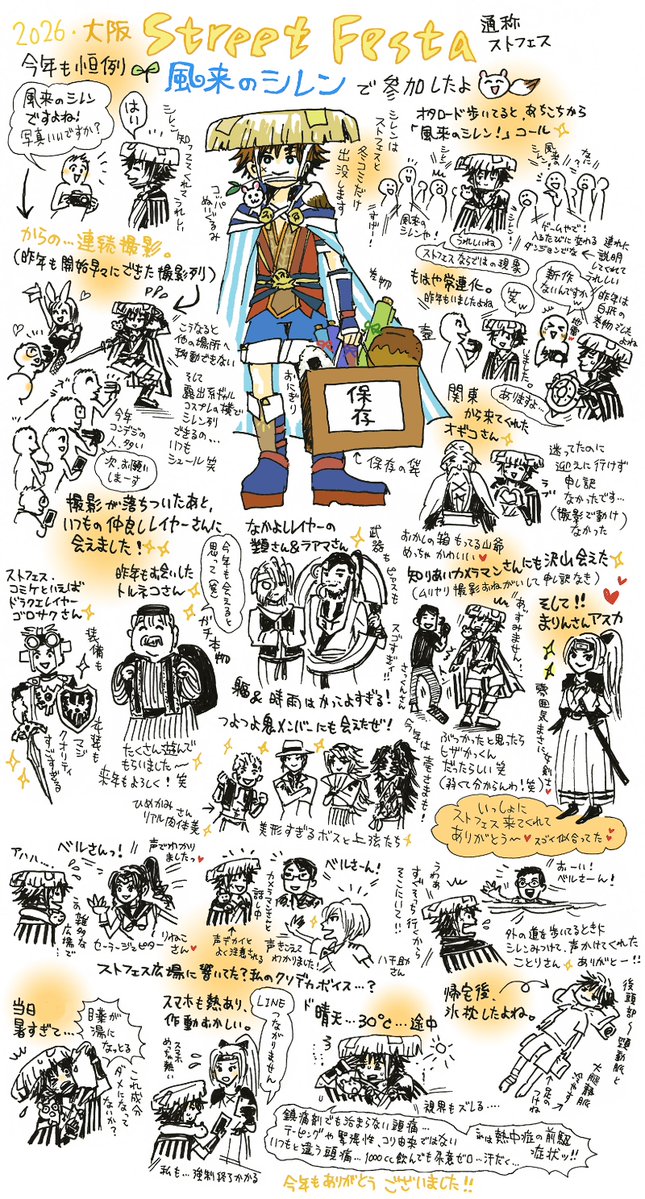 2026・大阪
Street Festa
通称
ストフェス
今年も恒例
風来のシレン
で参加したよ
風来のシレン
ですよね!
写真いいですか?
はい
シレン
知っててくれて
うれしい
シレンは
ストフェスと
冬コミだけ
出没します
コッパ
ぬいぐるみ
オタロード歩いてると、あちこちから
「風来のシレン!」コール
風来の
シレン!
すげー!
風来の
シレンや!
シレン!
うれしいね
ゲームやで!
入るたびに変わる
ダンジョンでな
連れた
説明
してくれてて
うれしい
ストフェスならではの現象
からの…連続撮影。
(昨年も開始早々にできた撮影列)
こうなると
他の場所へ
移動できない
そして
露出系ギャル
コスプレの横で
シレン列
できるの…
いつも
シュール笑
今年
コンデジの
人、多い
次、お願い
しまーす
おにぎり
保存
保存の袋
もはや常連化。
昨年もいましたよね
笑w
新作
ないんですか?
昨年は
白沢の
巻物でした
よね
しました。
ありますよ…
関東
から来てくれた
オギコさん
迷ってたのに
迎えに行けず
申し訳
なかったです…
(撮影で動け
なかった
おかしの箱もってる山爺
めっちゃかわいい
撮影が落ちついたあと、
いつもの仲良しレイヤーさんに
会えました!
ストフェス・
コミケといえば
ドラクエレイヤー
ゴロサクさん
装備も
マジ
クオリティ
すごすぎる
昨年もお会いした
トルネコさん
たくさん遊んで
もらいました〜
来年もよろしく!笑
なかよしレイヤーの
類さん&ラアマさん
今年も会えると
思って(笑)
武器も
スゴすぎ!!
&時雨はかっこよすぎる!
つよつよ鬼メンバーにも会えたぜ!
ひめかみさん
リアル肉体美
美形すぎるボスと上弦たち
知りあいカメラマンさんにも沢山会えた
(ムリヤリ撮影おねがいして申し訳なき)
あ、すみません!
ぶつかったと思ったら
ヒザかっくん
だったらしい笑
(弱くて分からんわ!笑)
そして!!
まりんさんアスカ
いっしょに
ストフェス来てくれて
ありがとう〜
スゴく似合ってた
アハハ…
この雑多な
広場で…
ベルさんっ!
声でわかり
ましたっ
セーラージュピター
りねこ
さん
カメラマンさんと
話し中
声デカイと
よく注意される
ベルさーん!
声きこえて
わかりました!
八千助
さん
うわぁ
すぐそっち行くから
そこにいて!!
おーい!
ベルさーん!
外の道を歩いてるときに
シレンみつけて、声かけてくれた
ことりさん
ありがとー!!
ストフェス広場に響いてた?私のクソデカボイス…?
当日
暑すぎて…
目薬が
湯に
なっとる
これ成分
ダメになって
ないか?
スマホも熱あり、
作動むずかしい。
スマホ
めっちゃ熱い
LINE
つながりません
私も…強制終了かかる
ド晴天…30℃…途中
視界もズレる…
鎮痛剤でも治まらない頭痛…
テーピングや緊張性、コリ由来ではない
いつもと違う頭痛…1000cc飲んでも尿意ゼロ…汗だく…
これは熱中症の前駆
症状ッ!!
帰宅後、
氷枕したよね。
後頭部〜頸動脈と
大腿動脈
冷やす
今年もありがとうございました!!